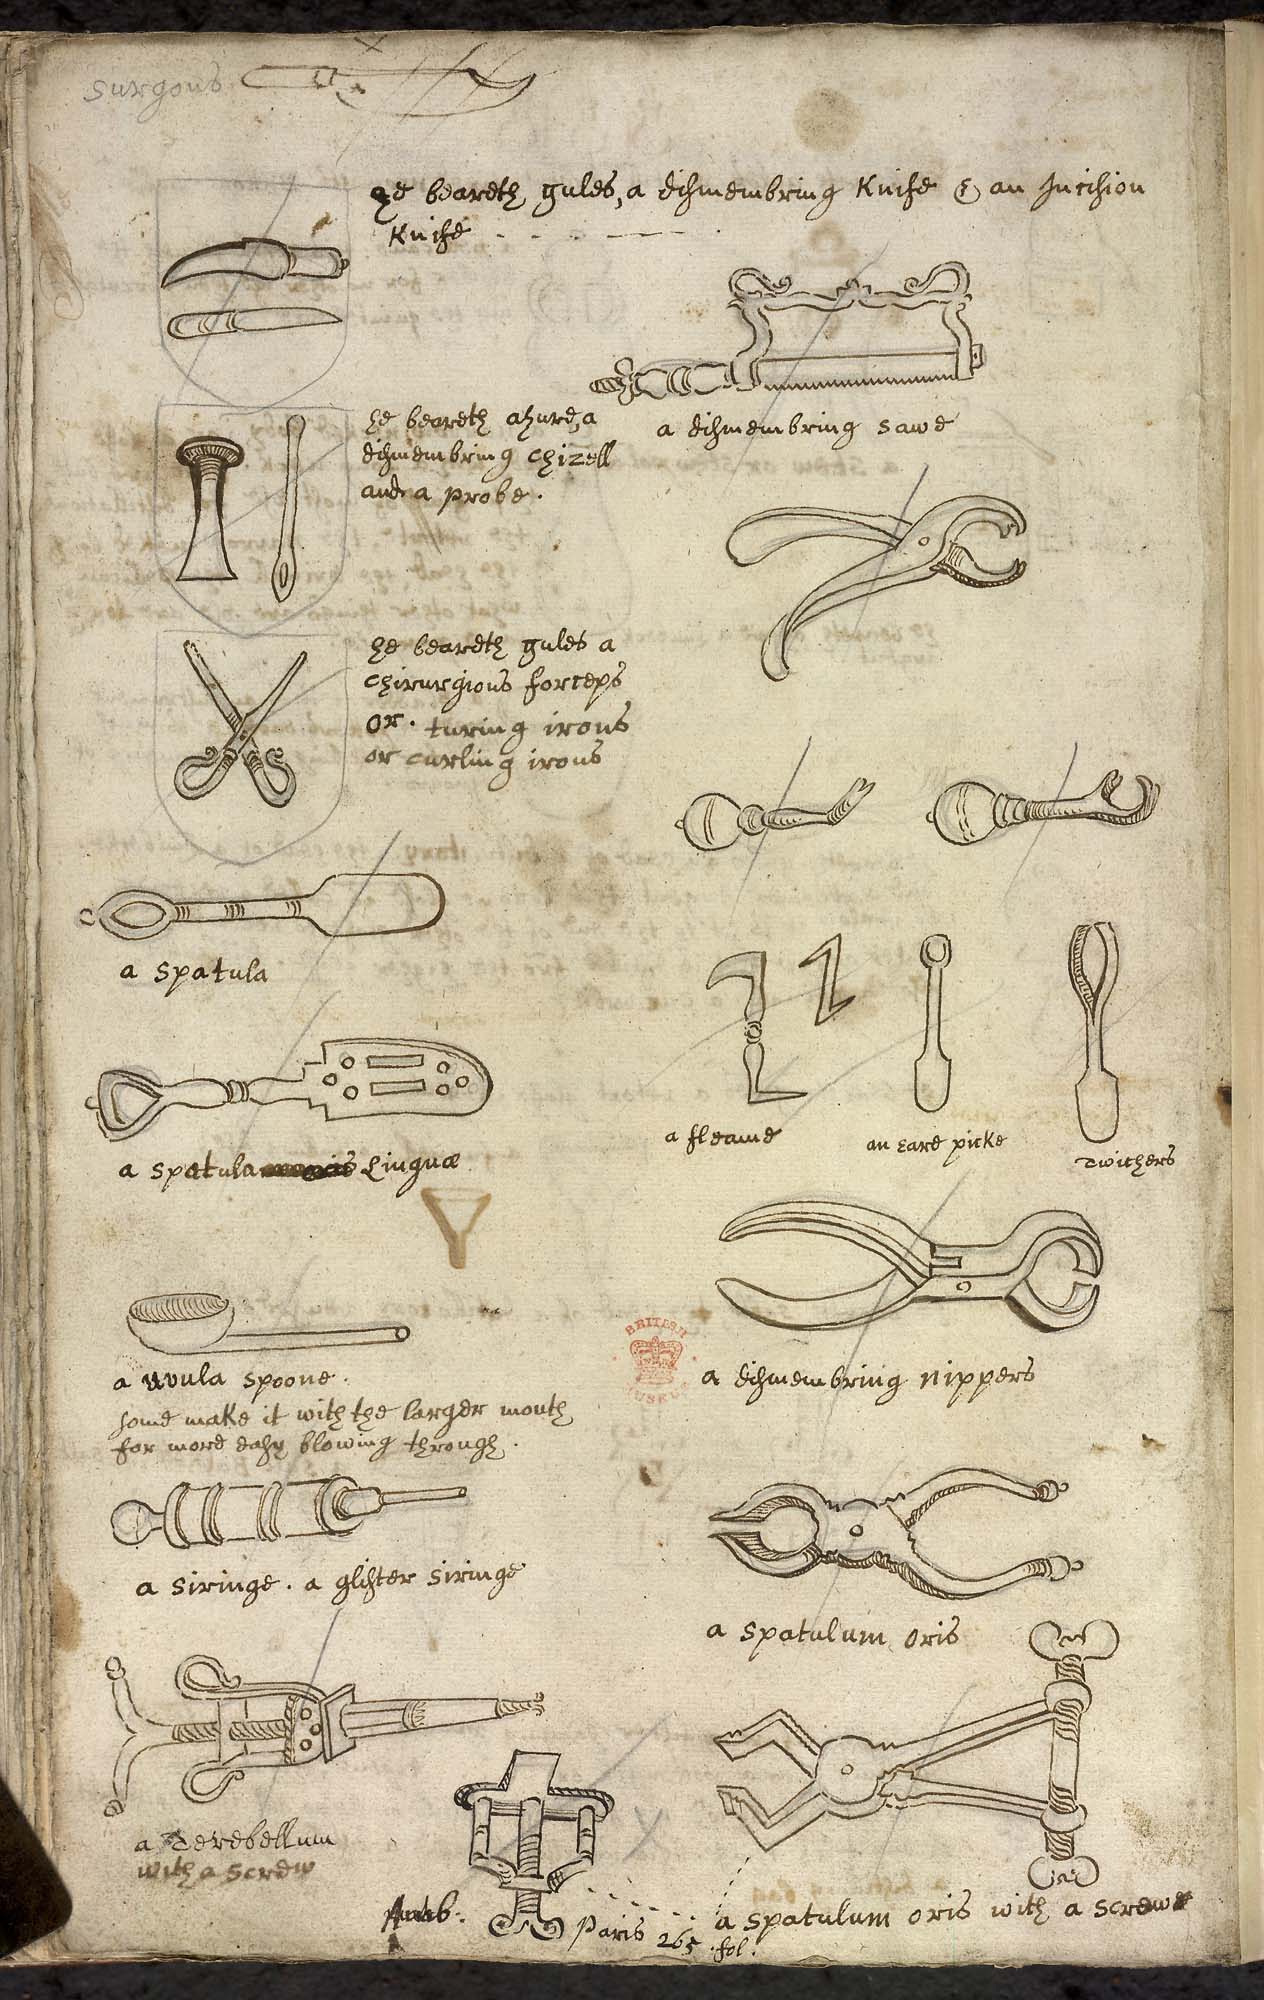 surgons
He beareth gules, a dismembring Knife & an Incision
Knife
a dismembring sawe
he beareth azure, a
dismembring chizell
and a probe.
he beareth gules a
chirurgions forceps
or. turing irons
or curling irons
a spatula
a fleame
an Eare picke
Twithers
a spatula Linguæ
a dismembring nippers
BRITISH
MUSEUM
a uvula spoone.
some make it with the larger mouth
for more easy blowing through.
a siringe. a glister siringe
a spatulum oris
a Terebellum
with a screw
Paris 265 fol.
a spatulum oris with a screwe